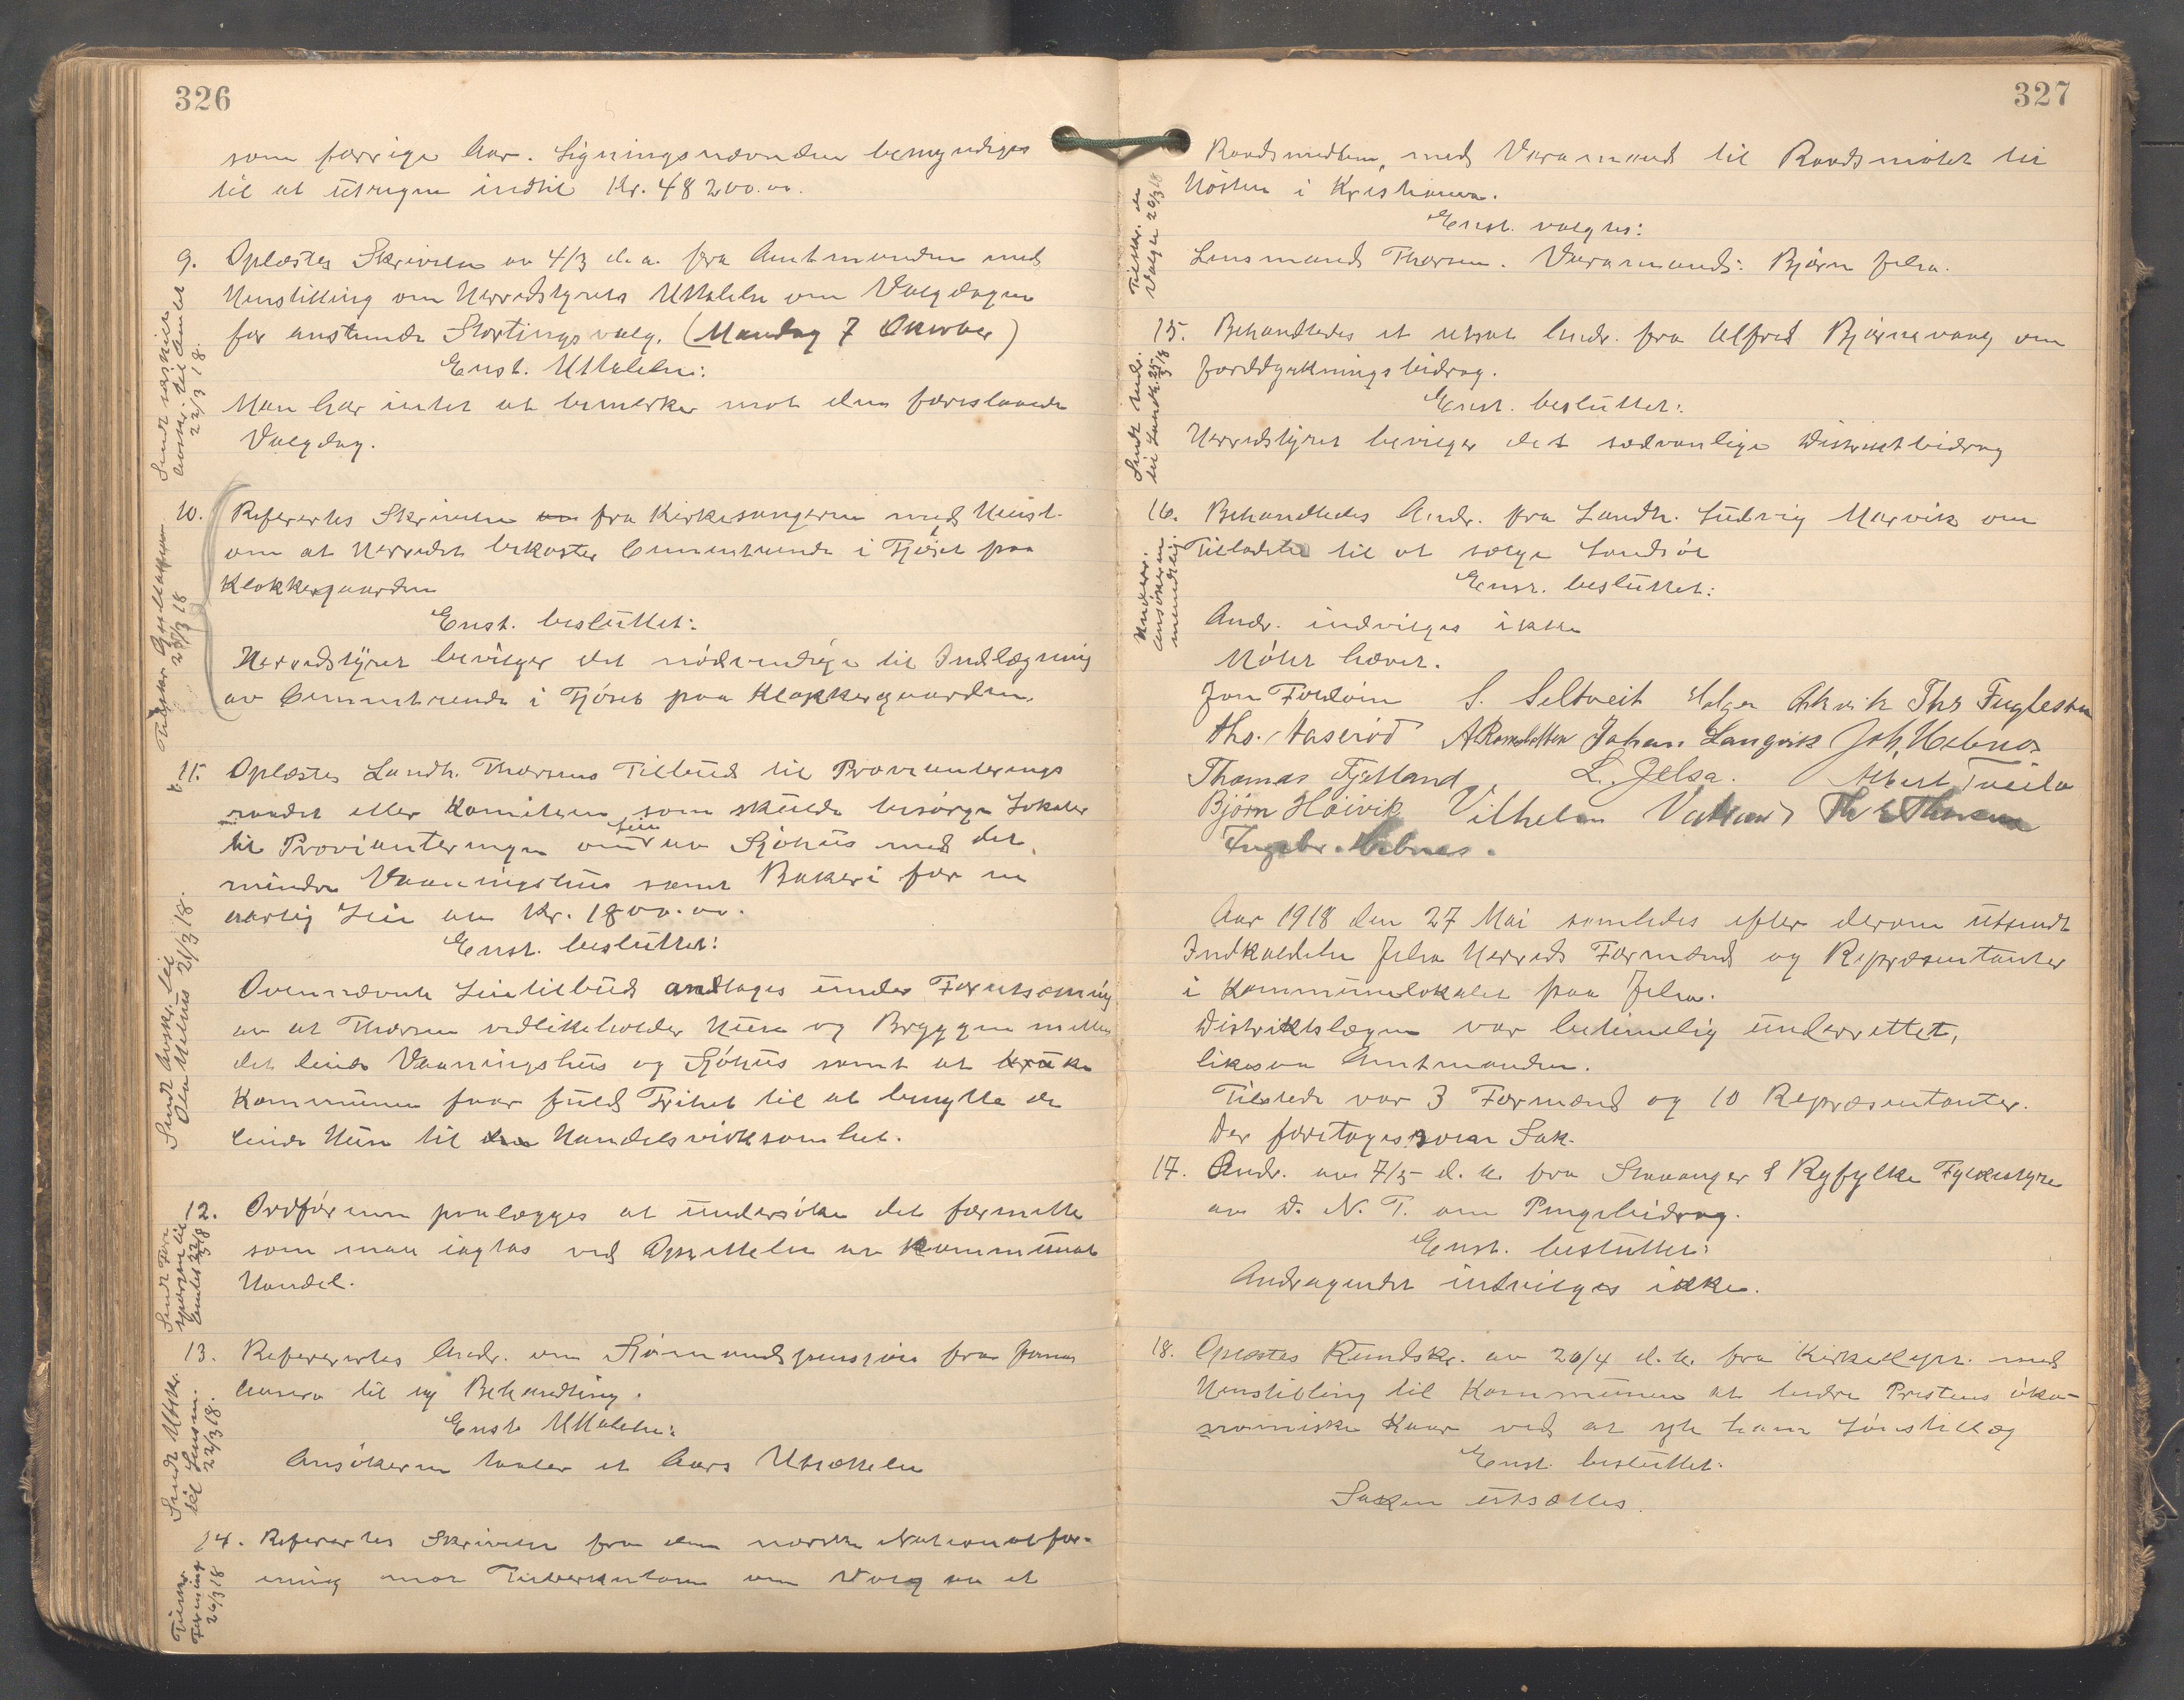 326
som forrige Aar. Ligningsnævnden bemyndiges
til at utregne indtil Kr. 48200.00.
9. Oplæstes Skrivelse av 4/3 d.a. fra Amtmanden med
Henstilling om Herredstyrets Uttalelse om Valgdagen
for anstundende Stortingsvalg. (Mandag 7 Oktober)
Enst. Uttalelse:
Man har intet at bemerke mot den foreslaaede
Valgdag.
Sendt særskilt
avskr. til Amtet
22/3 18.
10. Refereertes Skrivelse fra Kirkesangeren med Henst.
om at Herredet bekoster Cementrende i Fjøset paa
Klokkergaarden
Enst. besluttet:
Herredstyret bevilger det nødvendige til Indlægning
av Cementrende i Fjøset paa Klokkergaarden.
27/3 18
11. Oplæstes Landh. Thorsens Tilbud til Provianterings
raadet eller Komiteen som skulde besørge Lokaler
til Provianteringen om Leie av Sjøhus med det
mindre Vaaningshus samt Bakeri for en
aarlig Leie av Kr. 1800.00.
Enst. besluttet:
Ovennævnte Leietilbud antages under Forutsætning
av at Thorsen vedlikeholder Huse og Bryggen mellem
det leiede Vaaningshus og Sjøhus samt at
Kommunen faar fuld Frihet til at benytte de
leiede Huse til Handelsvirksomhet.
Sendt avskr. til
Ola Helnes 21/3 18.
12. Ordføreren paalægges at undersøke det fornødne
som maa iagtas ved Oprettelse av Kommunal
Handel.
Sendt Fore
spørgsel til
Amtet 22/3 18
13. Refereertes Andr. om Sjømandspension fra Jonas
til ny Behandling.
Enst Uttalelse:
Ansøkeren taaler et Aars Utsættelse
Sendt Utskr.
til Lensm.
22/3 18.
14. Refereertes Skrivelse fra den norske Nationalfor-
ening mot Tuberkulose om Valg av et
Tilskr.
Forening
26/3 18
327
Raadsmedlem, med Varamand til Raadsmøtet til
Høsten i Kristiania.
Enst. valgtes:
Lensmand Thorsen. Varamand: Bjørn Jelsa.
Tilskr. de
Valgte 26/3 18
15. Behandledes et utsat Andr. fra Alfred Bjørnevaag om
Jorddyrkningsbidrag.
Enst. besluttet:
Herredstyret bevilger det sædvanlige Distriktbidrag
Sendt Andr.
til Landh. 25/3 18
16. Behandledes Andr. fra Landh. Ludvig Marvik om
Tilladelse til at sælge Landsøl
Enst. besluttet:
Andr. indvilges ikke
Møtet hævet.
Underr.
Ansøkeren
mundtlig.
Jon Foldøen S. Seltveit Helgen Ahkvik Ths Fuglesten
Ths. Naserød A Ramsbotten Johan Langvik Joh, Hebnes
Thomas Fjetland L. Jelsa. Albert Tveita
Bjørn Høivik Vilhelm Vatland Th E Thorsen
Ingebr. Hebnes.
Aar 1918 den 27 Mai samledes efter derom utsendt
Indkaldelse Jelsa Herreds Formænd og Repræsentanter
i Kommunelokalet paa Jelsa.
Distriktslægen var betimelig underrettet,
likesaa Amtmanden.
Tilstede var 3 Formænd og 10 Repræsentanter.
Der foretoges som Sak.
17. Andr. av 7/5 d.a. fra Stavanger & Ryfylke Fylkestyre
av D. N. T. om Pengebidrag.
Enst. besluttet:
Andragendet indvilges ikke.
18. Oplæstes Rundskr. av 20/4 d.a. fra Kirkedept. med
Henstilling til Kommunen at bedre Prestens øko-
nomiske Kaar ved at yte ham Lønstillæg
Enst. besluttet:
Saken utsættes.